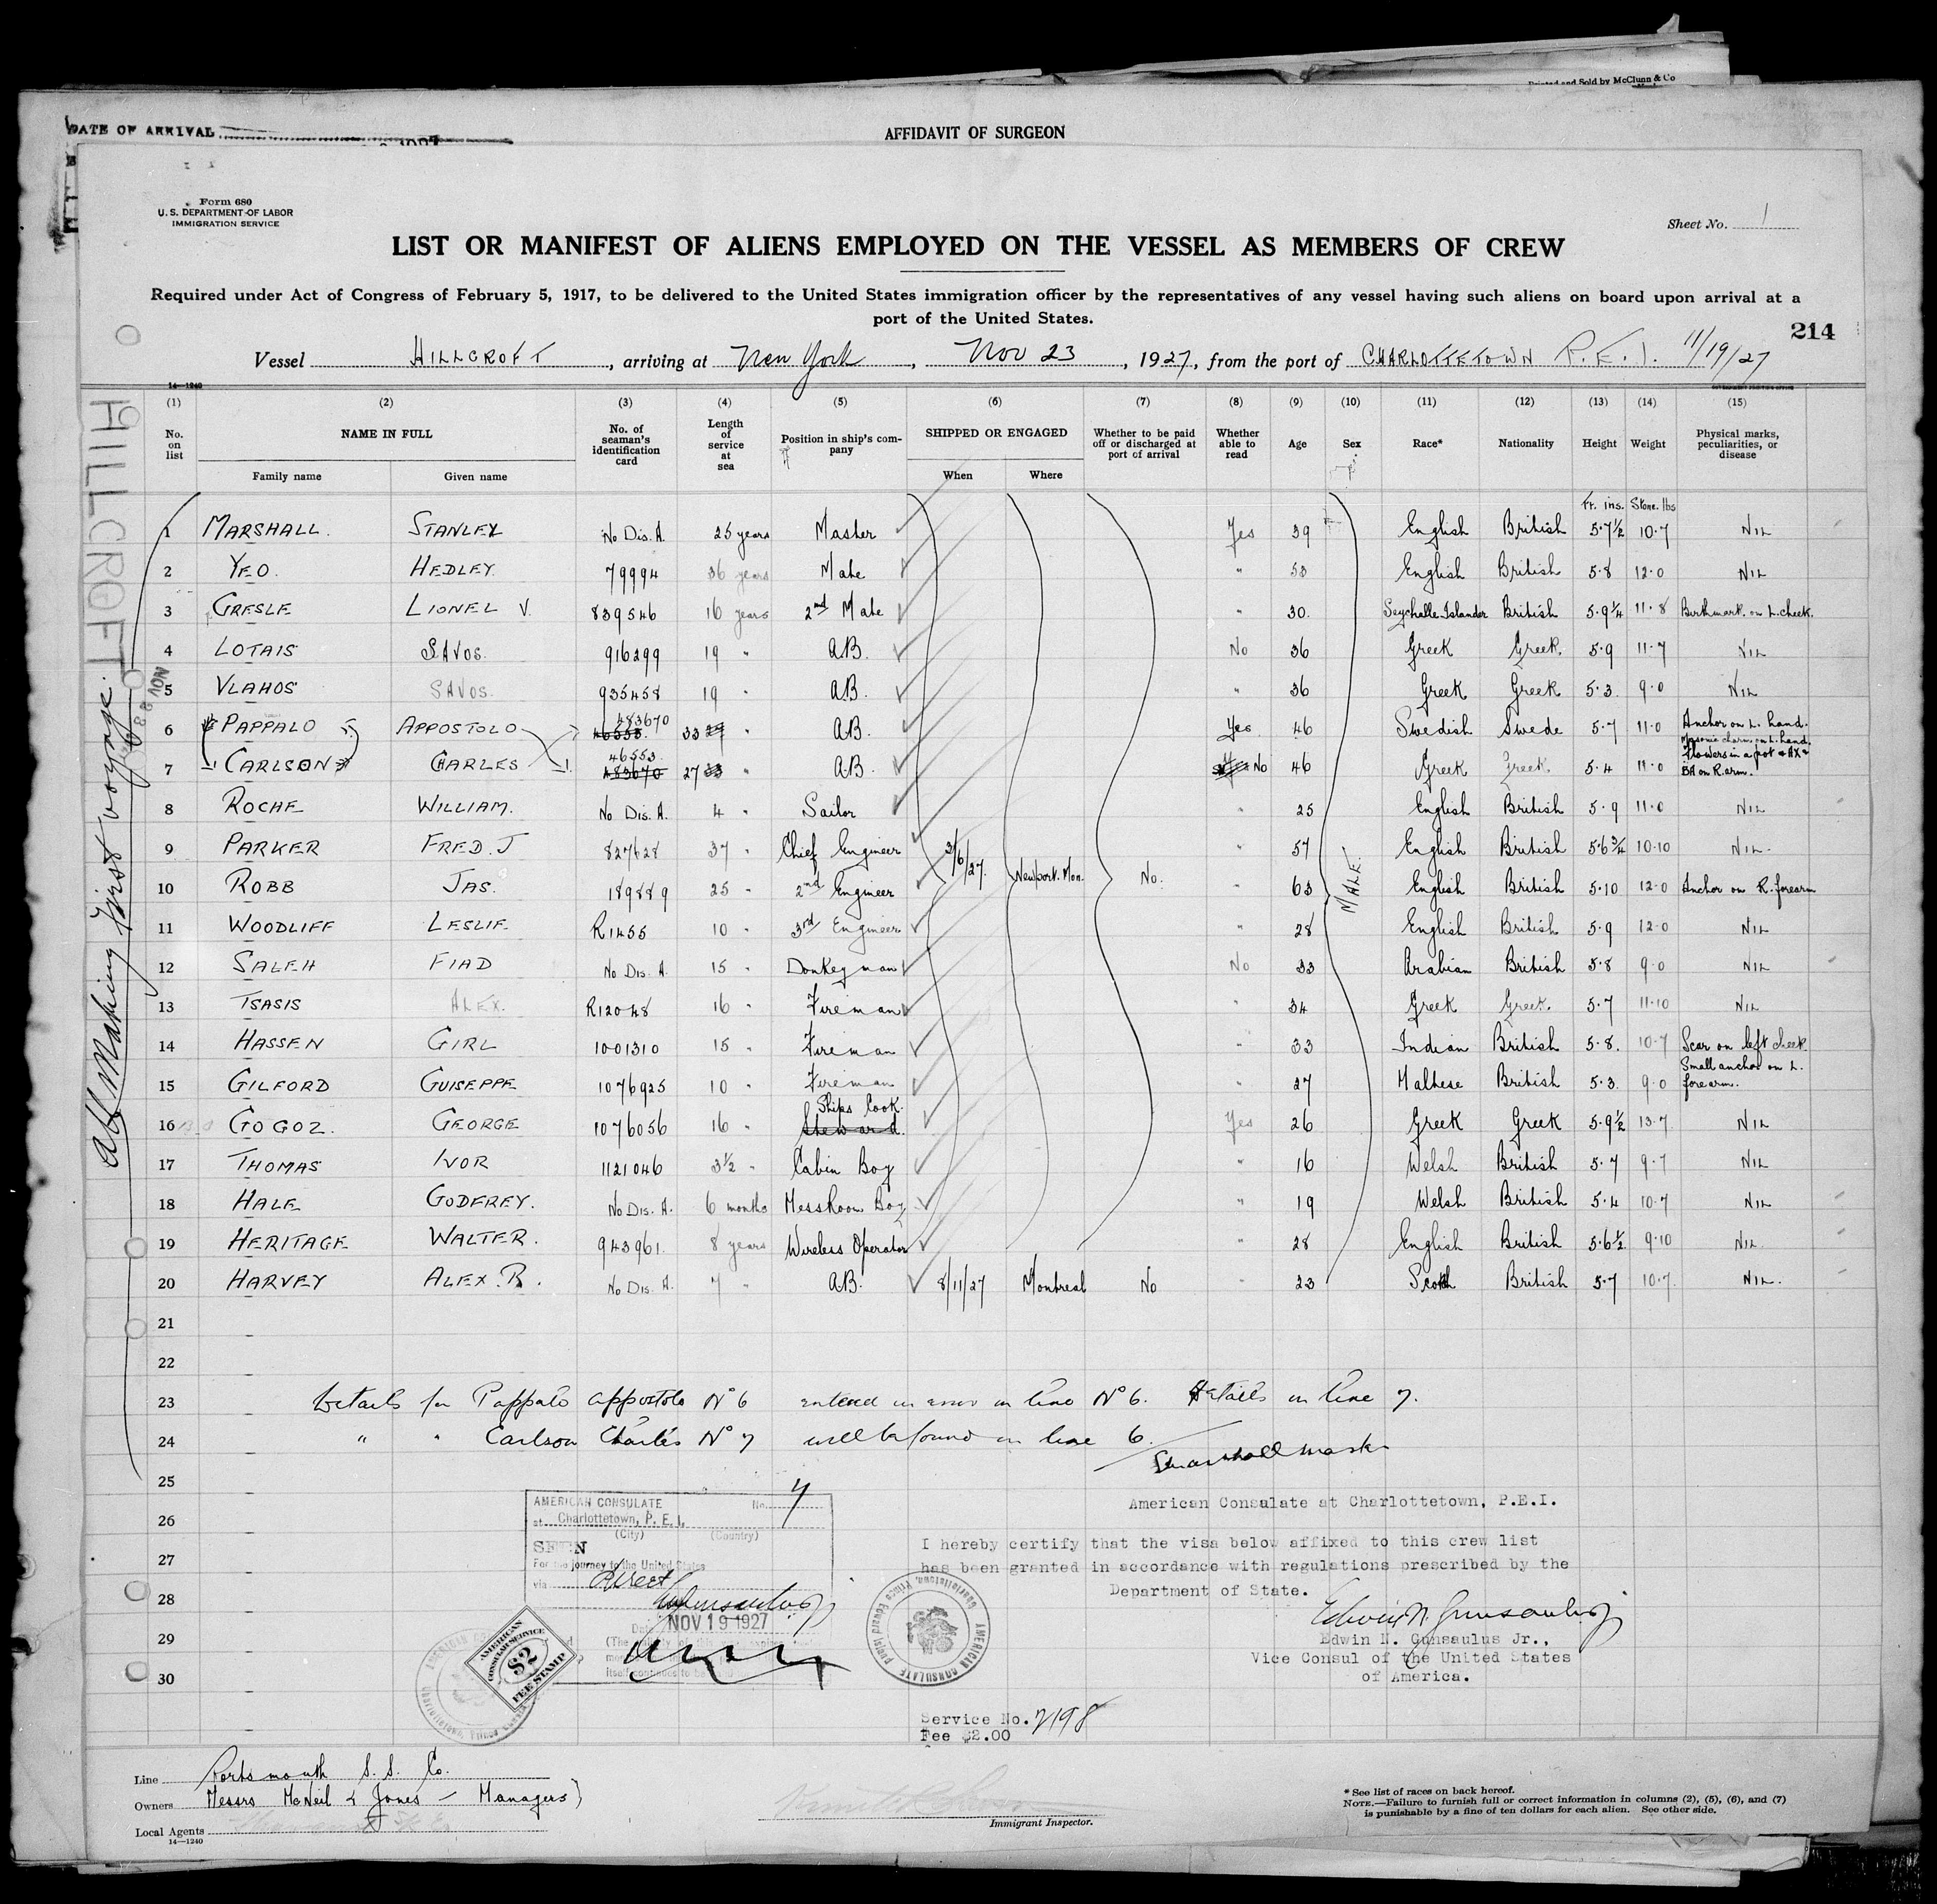 Printed and Sold by McClunn & Co
DATE OF ARRIVAL
AFFIDAVIT OF SURGEON
Form 680
U. S. DEPARTMENT OF LABOR
IMMIGRATION SERVICE
Sheet No. 1
LIST OR MANIFEST OF ALIENS EMPLOYED ON THE VESSEL AS MEMBERS OF CREW
Required under Act of Congress of February 5, 1917, to be delivered to the United States immigration officer by the representatives of any vessel having such aliens on board upon arrival at a
port of the United States.
214
Vessel HILLCROFT, arriving at New York, Nov 23, 1927, from the port of CHARLOTTETOWN P.E.I. 11/19/27
14—1240
(1) (2) (3) (4) (5) (6) (7) (8) (9) (10) (11) (12) (13) (14) (15)
No. on list NAME IN FULL No. of seaman's identification card Length of service at sea Position in ship's company SHIPPED OR ENGAGED Whether to be paid off or discharged at port of arrival Whether able to read Age Sex Race* Nationality Height Weight Physical marks, peculiarities, or disease
Family name Given name When Where
HILLCROFT
All Making First voyage.
Ft. ins. Stone. lbs
1 MARSHALL. STANLEY No Dis. A. 25 years Master Yes 39 English British 5·7½ 10·7 NIL
2 YEO. HEDLEY. 79994 36 years Mate " 53 English British 5·8 12·0 NIL
3 GRESLE LIONEL V. 839546 16 years 2nd Mate " 30. Seychelle Islander British 5·9¼ 11·8 Birthmark. on L. cheek.
4 LOTAIS SAVOS. 916299 19 " A.B. No 36 Greek Greek. 5·9 11·7 NIL
5 VLAHOS SAVOS. 935458 19 " A.B. " 36 Greek Greek 5·3 9·0 NIL
6 PAPPALO APPOSTOLO 46553. 483670 33 27 " A.B. Yes 46 Swedish Swede 5·7 11·0 Anchor on L. hand. Masonic charm on L. hand.
7 CARLSON CHARLES 483670 46553 27 33 " A.B. No 46 Greek Greek. 5·4 11·0 Flowers in a pot & AX & BA on R. arm.
8 ROCHE WILLIAM. No Dis. A. 4 " Sailor " 25 English British 5·9 11·0 NIL
9 PARKER FRED. J 827628 37 " Chief Engineer " 57 English British 5·6¾ 10·10 NIL.
10 ROBB JAS. 189889 25 " 2nd Engineer 3/6/27. Newport. Mon. No. " 63 MALE. English British 5·10 12·0 Anchor on R. forearm
11 WOODLIFF LESLIE R1455 10 " 3rd Engineer " 28 English British 5·9 12·0 NIL
12 SALEH FIAD No Dis. A. 15 " Donkeyman No 33 Arabian British 5·8 9·0 NIL
13 TSASIS ALEX. R12048 16 " Fireman " 34 Greek Greek. 5·7 11·10 NIL
14 HASSEN GIRL 1001310 15 " Fireman " 33 Indian British 5·8. 10·7 Scar on left cheek.
15 GILFORD GUISEPPE 1076925 10 " Fireman " 27 Maltese British 5·3. 9·0 Small anchor on L. forearm.
16 GOGOZ. GEORGE 1076056 16 " Steward. Ships Cook. Yes 26 Greek Greek 5·9½ 13·7 NIL
17 THOMAS IVOR 1121046 3½ " Cabin Boy " 16 Welsh British 5·7 9·7 NIL
18 HALE GODFREY. No Dis. A. 6 months Messroom Boy " 19 Welsh British 5·4 10·7 NIL
19 HERITAGE WALTER. 943961. 8 years Wireless Operator " 28 English British 5·6½ 9·10 NIL
20 HARVEY ALEX. R. No Dis. A. 7 " A.B. 8/11/27 Montreal No " 23 Scotch British 5·7 10·7. NIL.
21
22
23 Details for Pappalo Appostolo No 6 entered in error in line No 6. Details in line 7.
24 " " Carlson Charles No 7 will be found in line 6.
SMarshall Master
25
26
27
28
29
30
AMERICAN CONSULATE No.
at Charlottetown, P. E. I.
(City) (Country)
SEEN
For the journey to the United States
via Direct
NOV 19 1927
AMERICAN CONSULAR SERVICE
$2
FEE STAMP
American Consulate at Charlottetown, P.E.I.
I hereby certify that the visa below affixed to this crew list
has been granted in accordance with regulations prescribed by the
Department of State.
Edwin N. Gunsaulus Jr
Edwin N. Gunsaulus Jr.,
Vice Consul of the United States
of America.
AMERICAN CONSULATE
Charlottetown, Prince Edward Island
Service No. 2198
Fee $2.00
Line Portsmouth S. S. Co.
Owners Messrs McNeil & Jones - Managers)
Local Agents
14—1240
Immigrant Inspector.
* See list of races on back hereof.
NOTE.—Failure to furnish full or correct information in columns (2), (5), (6), and (7)
is punishable by a fine of ten dollars for each alien. See other side.